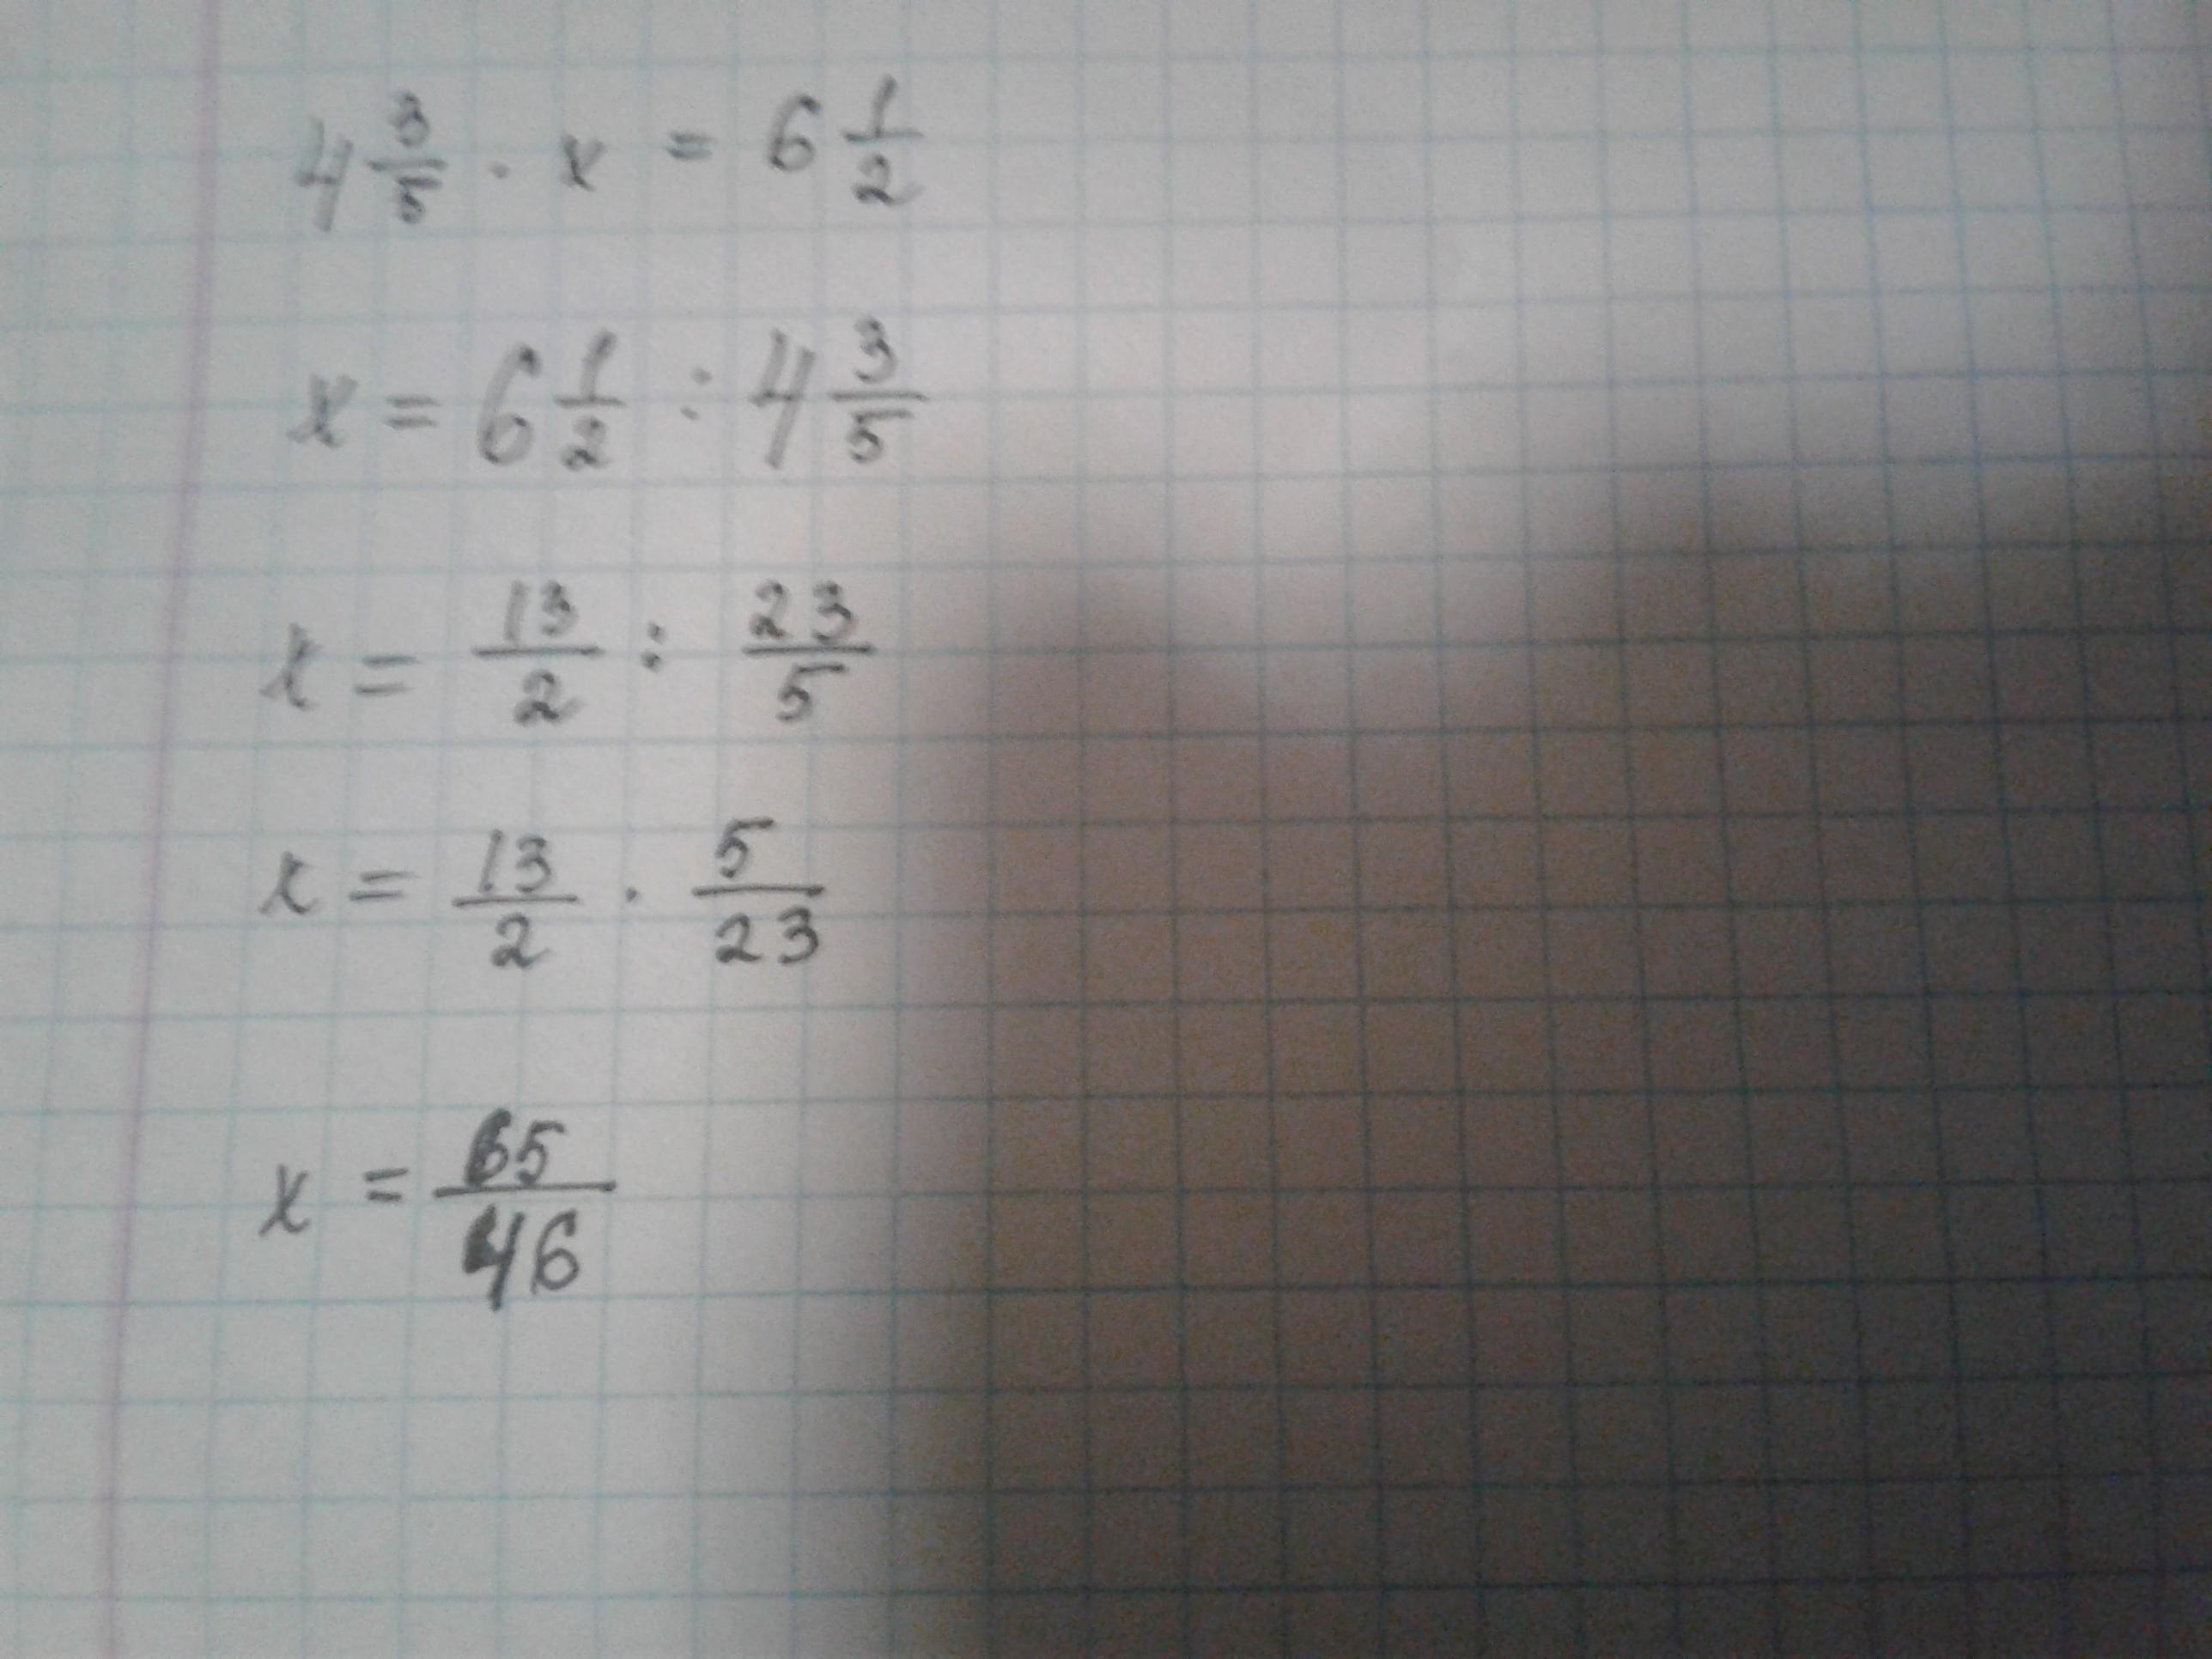 4 3/5 · x = 6 1/2
x = 6 1/2 : 4 3/5
x = 13/2 : 23/5
x = 13/2 · 5/23
x = 65/46